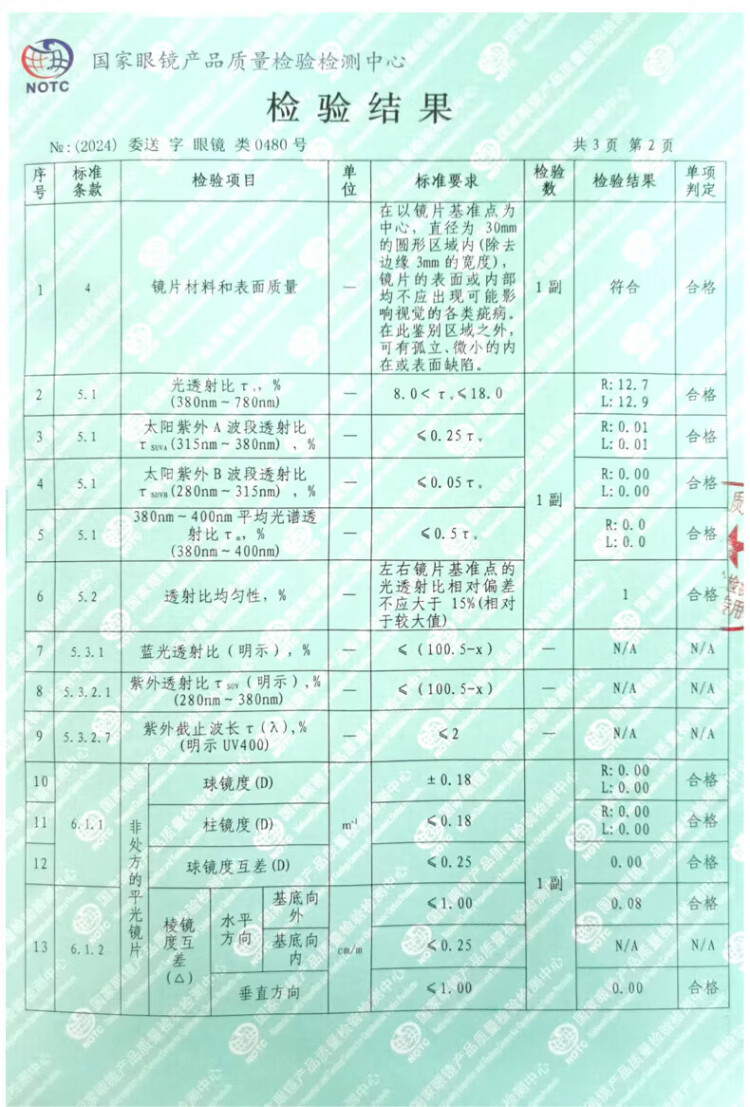 NOTC
国家眼镜产品质量检验检测中心
检验结果
№:(2024) 委送 字 眼镜 类 0480 号
共 3 页 第 2 页
序号 标准条款 检验项目 单位 标准要求 检验数 检验结果 单项判定
1 4 镜片材料和表面质量 — 在以镜片基准点为
中心，直径为 30mm
的圆形区域内(除去
边缘 3mm 的宽度)，
镜片的表面或内部
均不应出现可能影
响视觉的各类疵病。
在此鉴别区域之外，
可有孤立、微小的内
在或表面缺陷。
1 副 符合 合格
2 5.1 光透射比 τv，%
(380nm～780nm)
— 8.0< τv≤18.0
R: 12.7
L: 12.9
合格
3 5.1 太阳紫外 A 波段透射比
τSUVA(315nm～380nm) ，%
— ≤0.25 τv
R: 0.01
L: 0.01
合格
4 5.1 太阳紫外 B 波段透射比
τSUVB(280nm～315nm) ，%
— ≤0.05 τv
R: 0.00
L: 0.00
合格
1 副
5 5.1 380nm～400nm 平均光谱透
射比 τ，%
(380nm～400nm)
— ≤0.5 τv
R: 0.0
L: 0.0
合格
6 5.2 透射比均匀性，% — 左右镜片基准点的
光透射比相对偏差
不应大于 15%(相对
于较大值)
1 合格
7 5.3.1 蓝光透射比（明示），% — ≤ (100.5-x) — N/A N/A
8 5.3.2.1 紫外透射比 τSUV（明示），%
(280nm～380nm)
— ≤ (100.5-x) — N/A N/A
9 5.3.2.7 紫外截止波长 τ(λ)，%
(明示 UV400)
— ≤2 — N/A N/A
非处方的平光镜片
10 球镜度(D) ±0.18
R: 0.00
L: 0.00
合格
11 6.1.1 柱镜度(D) m⁻¹ ≤0.18
R: 0.00
L: 0.00
合格
12 球镜度互差(D) ≤0.25 0.00 合格
1 副
13 6.1.2 棱镜度互差(△) cm/m
水平方向
基底向外 ≤1.00 0.08 合格
基底向内 ≤0.25 N/A N/A
垂直方向 ≤1.00 0.00 合格